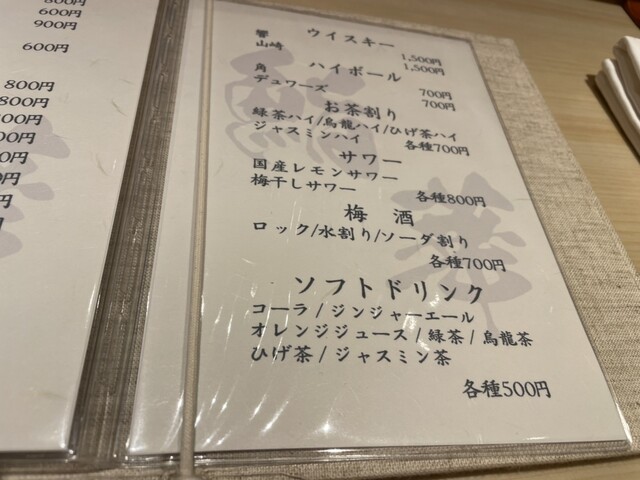 800円
600円
900円
600円
800円
800円
800円
00円
00円
0円
円
円
ウイスキー
響 1,500円
山崎 1,500円
ハイボール
角 700円
デュワーズ 700円
お茶割り
緑茶ハイ/烏龍ハイ/ひげ茶ハイ
ジャスミンハイ 各種700円
サワー
国産レモンサワー
梅干しサワー
各種800円
梅 酒
ロック/水割り/ソーダ割り
各種700円
ソフトドリンク
コーラ / ジンジャーエール
オレンジジュース / 緑茶 / 烏龍茶
ひげ茶 / ジャスミン茶
各種500円